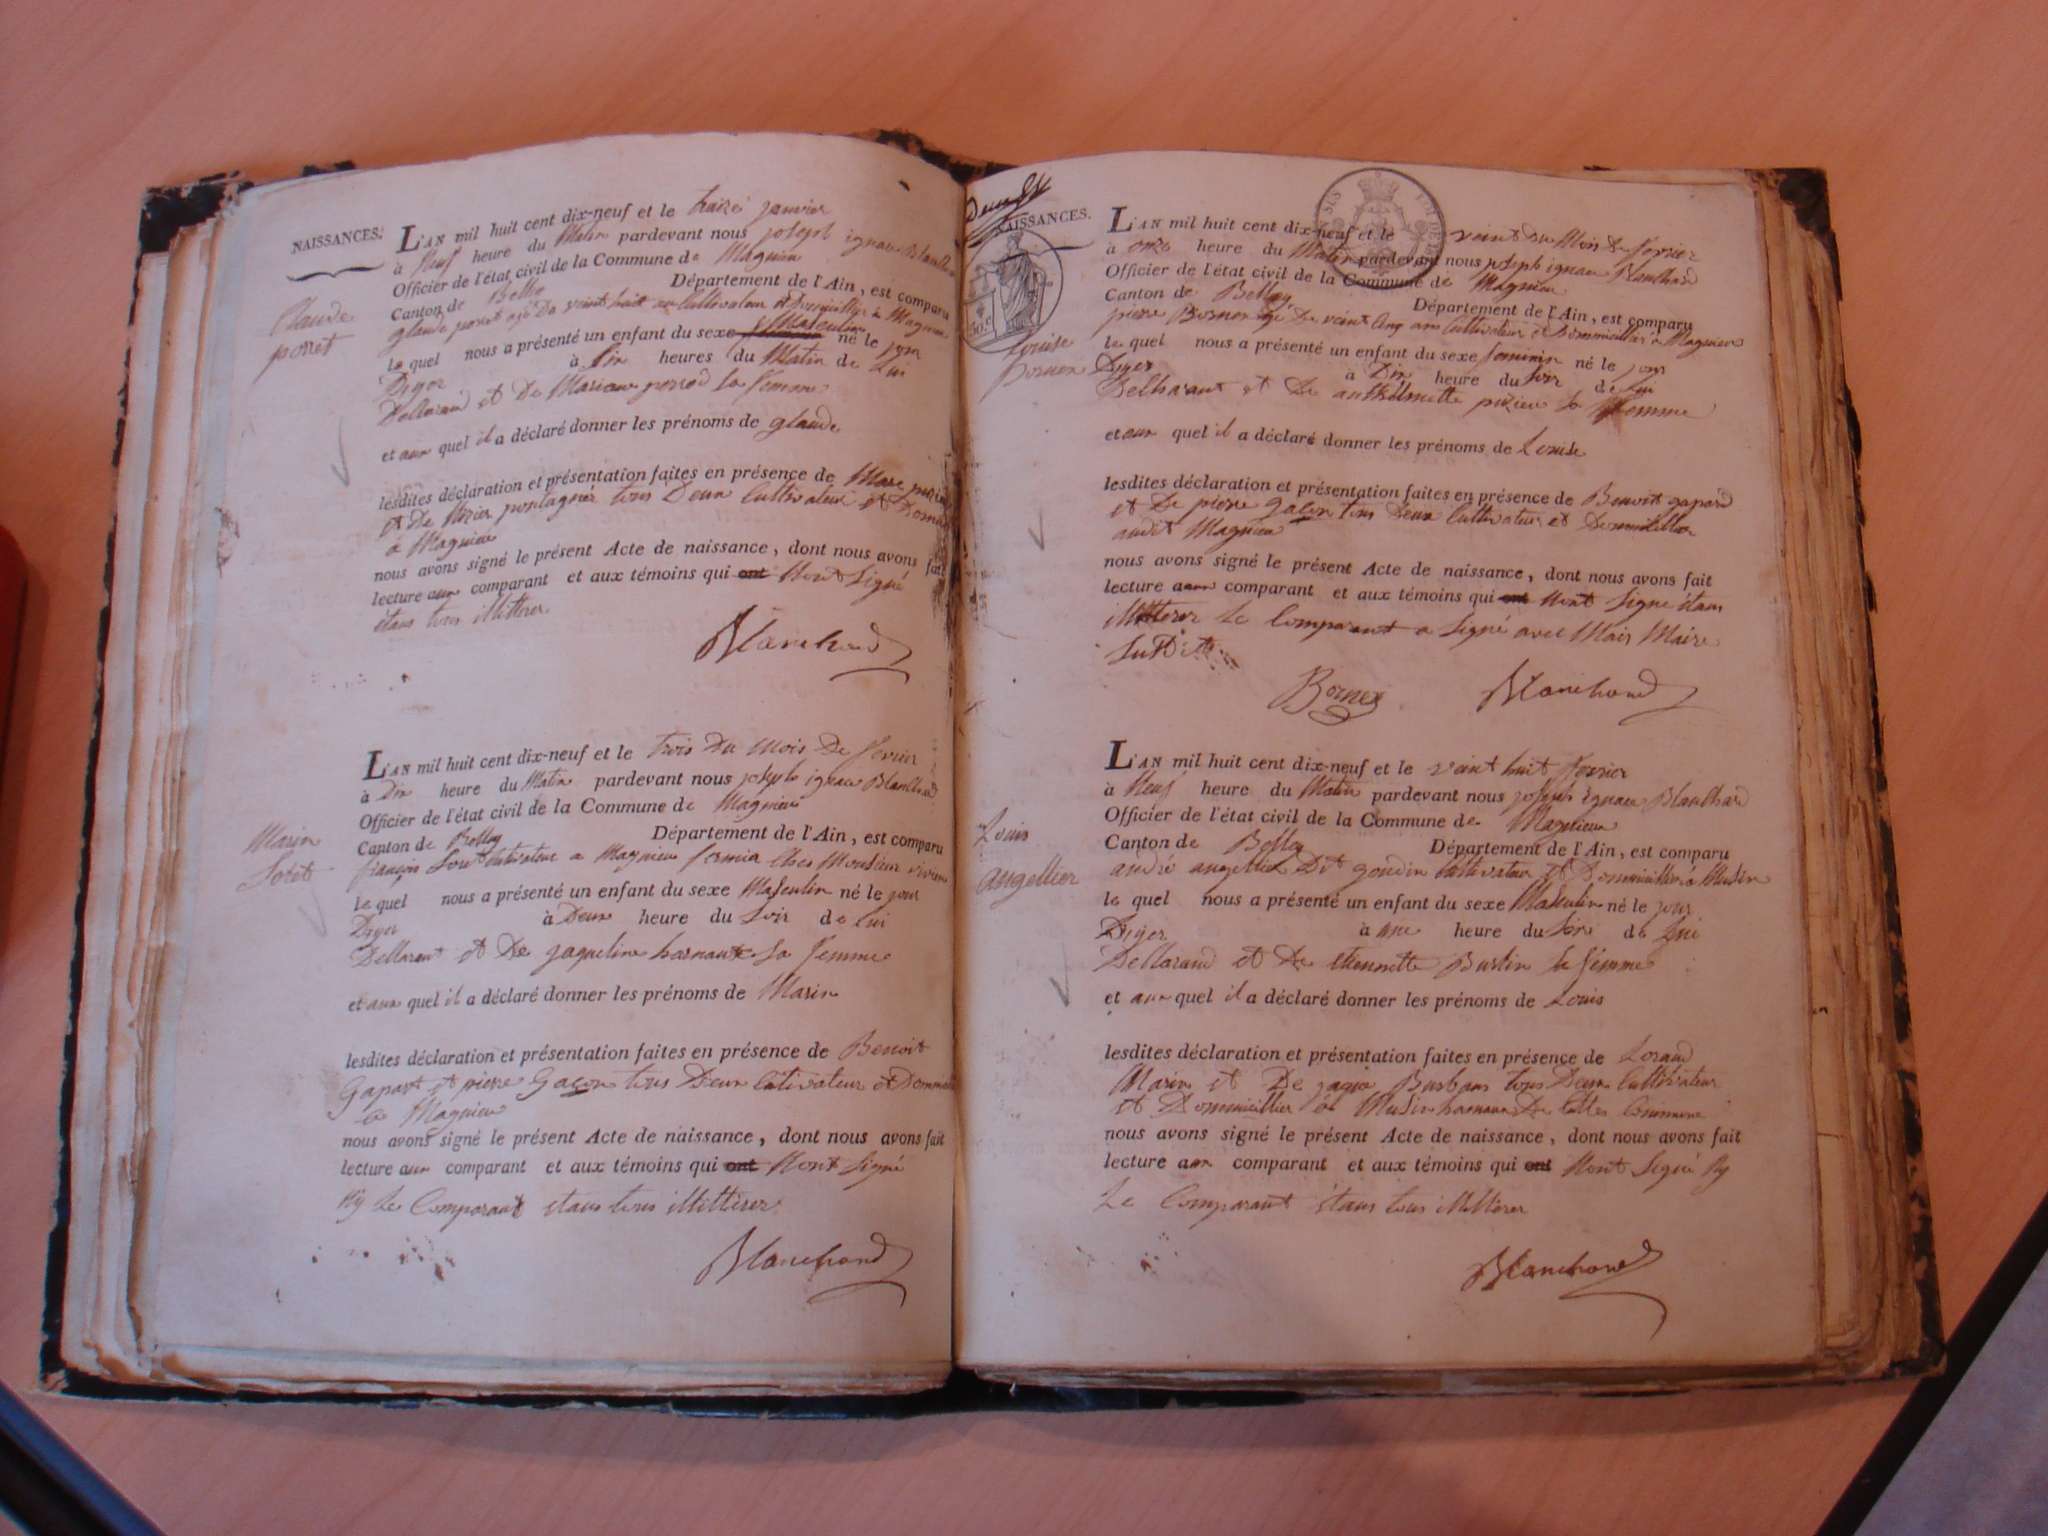 NAISSANCES.
L'AN mil huit cent dix-neuf et le treize janvier
à Neuf heure du Matin pardevant nous joseph ignace Blanchard
Officier de l'état civil de la Commune de Magnieu
Canton de Belley Département de l'Ain, est comparu
glaude porret agé de veint huit an Cultivateur et Domicillier à Magnieu
le quel nous a présenté un enfant du sexe Masculin né le jour
Dyer à Dix heures du Matin de Lui
Dellarand et de Mariane perrod sa femme
et aux quel il a déclaré donner les prénoms de glaude
lesdites déclaration et présentation faites en présence de Marc
et de pontagnier tous Deux Cultivateur et
à Magnieu
nous avons signé le présent Acte de naissance, dont nous avons fait
lecture aux comparant et aux témoins qui ont Nont Signé
étans tous illitterer
Blanchard
Claude
porret
L'AN mil huit cent dix-neuf et le trois du Mois De fevrier
à Dix heure du Matin pardevant nous joseph ignace Blanchard
Officier de l'état civil de la Commune de Magnieu
Canton de Belley Département de l'Ain, est comparu
françois Cultivateur a Magnieu fermier Ches Monsieur
le quel nous a présenté un enfant du sexe Masculin né le jour
Dyer à Deux heure du Soir de Lui
Dellarant et De jaqueline sa femme
et aux quel il a déclaré donner les prénoms de Marin
lesdites déclaration et présentation faites en présence de Benoit
Gapart et pierre Gaçon tous Deux Cultivateur et
a Magnieu
nous avons signé le présent Acte de naissance, dont nous avons fait
lecture aux comparant et aux témoins qui ont Nont Signé
Ny Le Comparant étans tous illitterer
Blanchard
Marin
NAISSANCES.
L'AN mil huit cent dix-neuf et le veint du Mois De fevrier
à onze heure du Matin pardevant nous joseph ignace Blanchard
Officier de l'état civil de la Commune de Magnieu
Canton de Belley Département de l'Ain, est comparu
pierre Bornex agé De veint Cinq ans Cultivateur et Dommicillier a Magnieu
le quel nous a présenté un enfant du sexe feminin né le jour
Dyer à Dix heure du Soir de Lui
Delharant et De anthelmette puzieu sa femme
et aux quel il a déclaré donner les prénoms de Louise
lesdites déclaration et présentation faites en présence de Benoit gapard
et De pierre gaçon tous Deux Cultivateur et Dommicillier
audit Magnieu
nous avons signé le présent Acte de naissance, dont nous avons fait
lecture aux comparant et aux témoins qui ont Nont Signe étans
illitterer Le Comparant a Signé avec Maire
Susdit
Bornex Blanchard
Louise
Bornex
L'AN mil huit cent dix-neuf et le veint huit fevrier
à Neuf heure du Matin pardevant nous joseph ignace Blanchard
Officier de l'état civil de la Commune de Magnieu
Canton de Belley Département de l'Ain, est comparu
andré angellier Dit goudin Cultivateur et Dommicillier a
le quel nous a présenté un enfant du sexe Masculin né le jour
Dyer à une heure du Soir de Lui
Dellarand et De etiennette Burtin sa femme
et aux quel il a déclaré donner les prénoms de Louis
lesdites déclaration et présentation faites en présence de
Marin et De jaque tous Deux Cultivateur
et Dommicillier
nous avons signé le présent Acte de naissance, dont nous avons fait
lecture aux comparant et aux témoins qui ont Nont Signé Ny
Le Comparant étans tous illitterer
Blanchard
Louis
angellier